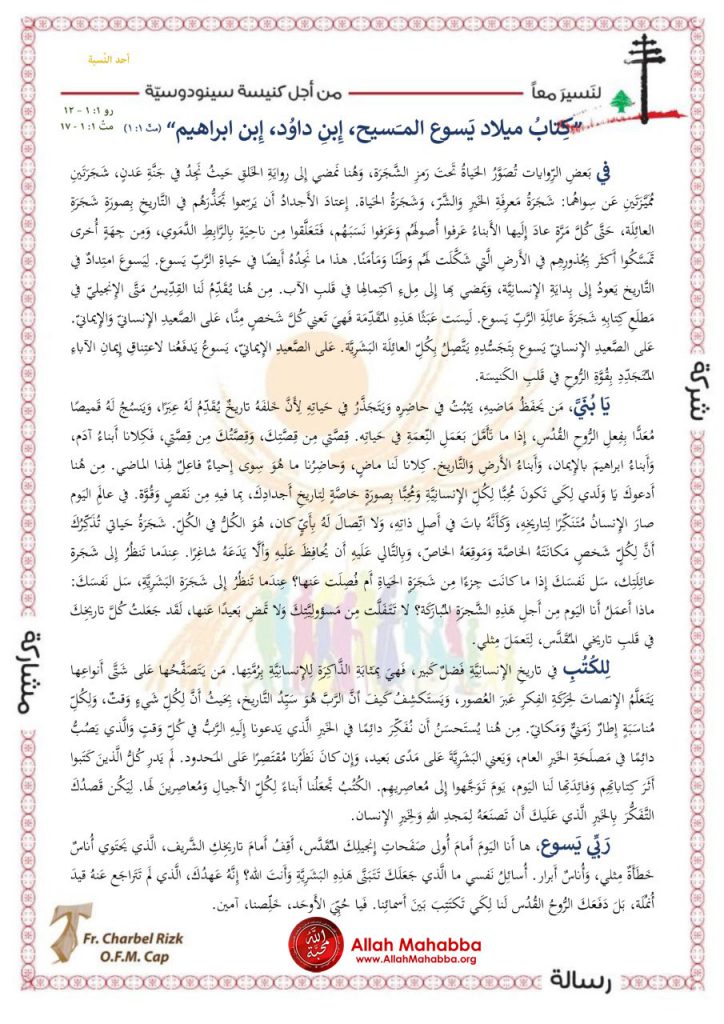 أحد النّسبة
لنَسيرَ معاً
من أجل كنيسة سينودوسيّة
رو ١: ١ - ١٢
متّ ١: ١ - ١٧
"كِتابُ ميلاد يَسوع المَسيح، إبنِ داوُد، إبن ابراهيم" (متّ ١: ١)
في بَعضِ الرِّوايات تُصَوَّرُ الحَياةُ تَحتَ رَمزِ الشَّجَرَة، وَهُنا نَمضي إلى رِوايَةِ الخَلقِ حَيثُ نَجِدُ في جَنَّةِ عَدنٍ، شَجَرَتَينِ
مُمَيَّزَتَينِ عَن سِواهُما: شَجَرَةُ مَعرِفَةِ الخَيرِ والشَّرّ، وَشَجَرَةُ الحَياة. إعتادَ الأجدادُ أن يَرسِموا تَجَذُّرَهُم في التَّاريخِ بِصورَةِ شَجَرَةِ
العائِلَة، حَتَّى كُلَّ مَرَّةٍ عادَ إلَيها الأبناءُ عَرفوا أُصولَهُم وَعَرَفوا نَسَبَهُم، فَتَعَلَّقوا مِن ناحِيَةٍ بِالرَّابِطِ الدَّمَوي، وَمِن جِهَةٍ أُخرى
تَمَسَّكوا أكثَر بِجُذورِهِم في الأرضِ الَّتي شَكَّلَت لَهُم وَطَنًا وَمَأمَنًا. هذا ما نَجِدُهُ أيضًا في حَياةِ الرَّبِّ يَسوع. لِيَسوعَ امتِدادٌ في
التَّاريخِ يَعودُ إلى بِدايَةِ الإنسانِيَّة، وَيَمضي بِها إلى مِلءِ اكتِمالِها في قَلبِ الآب. مِن هُنا يُقَدِّمُ لَنا القِدِّيسُ مَتَّى الإنجيليّ في
مَطلَعِ كِتابِهِ شَجَرَةَ عائِلَةِ الرَّبِّ يَسوع. لَيسَت عَبَثًا هَذِهِ المُقَدِّمَة فَهيَ تَعني كُلَّ شَخصٍ مِنَّا، عَلى الصَّعيدِ الإنسانيّ وَالإيمانيّ.
عَلى الصَّعيدِ الإنسانيّ يَسوع بِتَجَسُّدِهِ يَتَّصِلُ بِكُلِّ العائِلَة البَشَرِيَّة. عَلى الصَّعيدِ الإيمانيّ، يَسوعُ يَدفَعُنا لاعتِناقِ إيمانِ الآباءِ
المُتَجَدِّدِ بِقُوَّةِ الرُّوحِ في قَلبِ الكَنيسَة.
يَا بُنَيَّ، مَن يَحفَظُ مَاضيهِ، يَثبُتُ في حاضِرِه وَيَتَجَذَّرُ في حَياتِهِ لِأنَّ خَلفَهُ تاريخٌ يُقَدِّمُ لَهُ عِبَرًا، وَيَنسُجُ لَهُ قَميصًا
مُعَدًّا بِفِعلِ الرُّوحِ القُدُس، إذا ما تَأمَّلَ بَعَمَلِ النِّعمَةِ في حَياتِه. قِصَّتي مِن قِصَّتِكَ، وَقِصَّتُكَ مِن قِصَّتي، فَكِلانا أبناءُ آدَم،
وَأبناءُ ابراهيمَ بالإيمان، وَأبناءُ الأرضِ والتَّاريخ. كِلانا لَنا ماضٍ، وَحاضِرُنا ما هُوَ سِوى إحياءٌ فاعِلٌ لِهذا الماضي. مِن هُنا
أدعوكَ يَا وَلَدي لِكَي تَكونَ مُحِبًّا لِكُلِّ الإنسانِيَّة وَمُحِبًّا بِصورَةٍ خاصَّةٍ لِتاريخِ أجدادِكَ، بِما فيهِ مِن نَقصٍ وَقُوَّة. في عالَمِ اليَومِ
صارَ الإنسانُ مُتَنَكِّرًا لِتاريخِهِ، وَكَأنَّهُ باتَ في أصلِ ذاتِهِ، وَلا اتِّصالَ لَهُ بِأيٍّ كان، هُوَ الكُلُّ في الكُلّ. شَجَرَةُ حَياتي تُذَكِّرُكَ
أنَّ لِكُلِّ شَخصٍ مَكانَتَهُ الخاصَّة وَمَوقِعَهُ الخاصّ، وَبِالتَّالي عَلَيهِ أن يُحافِظَ عَلَيهِ وَألَّا يَدَعَهُ شاغِرًا. عِندَما تَنظُرُ إلى شَجَرةِ
عائِلَتِك، سَل نَفسَكَ إذا ما كانَت جِزءًا مِن شَجَرَةِ الحَياةِ أم فُصِلَت عَنها؟ عِندَما تَنظُرُ إلى شَجَرَةِ البَشَرِيَّةِ، سَل نَفسَكَ:
ماذا أعمَلُ أنا اليَوم مِن أجلِ هَذِهِ الشَّجَرَةِ المُبارَكَة؟ لا تَتَفَلَّت مِن مَسؤولِيَّتِكَ وَلا تَمضِ بَعيدًا عَنها، لَقَد جَعَلتُ كُلَّ تاريخِكَ
في قَلبِ تاريخي المُقَدَّس، لِتَعمَلَ مِثلي.
لِلكُتُبِ في تاريخِ الإنسانِيَّةِ فَضلٌ كَبير، فَهيَ بِمَثابَةِ الذَّاكِرَةِ لِلإنسانِيَّةِ بِرُمَّتِها. مَن يَتَصَفَّحُها عَلى شَتَّى أنواعِها
يَتَعَلَّمُ الإنصاتَ لِحَرَكَةِ الفِكرِ عَبرَ العُصور، وَيَستَكشِفُ كَيفَ أنَّ الرَّبَّ هُوَ سَيِّدُ التَّاريخ، بِحَيثُ أنَّ لِكُلِّ شَيءٍ وَقتٌ، وَلِكُلِّ
مُناسَبَةٍ إطارٌ زَمَنيٌّ وَمَكانيّ. مِن هُنا يُستَحسَنُ أن نُفَكِّرَ دائِمًا في الخَيرِ الَّذي يَدعونا إلَيهِ الرَّبُّ في كُلِّ وَقتٍ وَالَّذي يَصُبُّ
دائِمًا في مَصلَحَةِ الخَيرِ العام، وَيَعني البَشَرِيَّةَ عَلى مَدًى بَعيد، وَإن كانَ نَظَرُنا مُقتَصِرًا عَلى المَحدود. لَم يَدرِ كُلُّ الَّذينَ كَتَبوا
أثَرَ كِتاباتِهِم وَفائِدَتِها لَنا اليَوم، يَومَ تَوَجَّهوا إلى مُعاصِريهِم. الكُتُبُ تَجعَلُنا أبناءً لِكُلِّ الأجيالِ وَمُعاصِرينَ لَها. لِيَكُن قَصدُكَ
التَّفَكُّرَ بِالخَيرِ الَّذي عَلَيكَ أن تَصنَعَهُ لِمَجدِ اللهِ وَلِخَيرِ الإنسان.
رَبِّي يَسوع، ها أنا اليَومَ أمامَ أُولى صَفَحاتِ إنجيلِكَ المُقَدَّس، أقِفُ أمامَ تاريخِكِ الشَّريف، الَّذي يَحتَوي أُناسٌ
خَطَأَةٌ مِثلي، وَأُناسٌ أبرار. أُسائِلُ نَفسي ما الَّذي جَعَلَكَ تَتَبَنَّى هَذِهِ البَشَرِيَّة وَأنتَ الله؟ إنَّهُ عَهدُكَ، الَّذي لَم تَتَراجَع عَنهُ قَيدَ
أُنمُلَة، بَل دَفَعَكَ الرُّوحُ القُدُس لَنا لِكَي تَكتَتِبَ بَينَ أسمائِنا. فَيا حُبِّيَ الأوحَد، خَلِّصنا، آمين.
شركة
مشاركة
رسالة
Fr. Charbel Rizk
O.F.M. Cap
الله محبة
Allah Mahabba
www.AllahMahabba.org